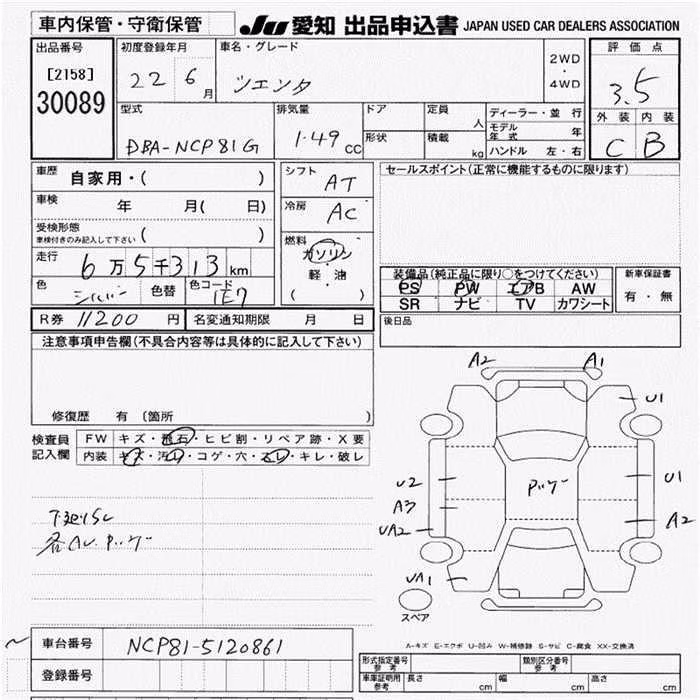 車内保管・守衛保管
JU 愛知 出品申込書 JAPAN USED CAR DEALERS ASSOCIATION
出品番号
[2158]
30089
初度登録年月
22 6月
車名・グレード
シエンタ
2WD
・
4WD
評価点
3.5
外装 内装
C B
型式
DBA-NCP81G
排気量
1.49 CC
ドア
形状
定員 人
積載 kg
ディーラー・並行
モデル年式 年
ハンドル 左・右
車歴 自家用・( )
車検 年 月( 日)
受検形態
車検付きのみ記入して下さい ( )
走行 6万5千313km
色 シルバー 色替 色コード 1E7
シフト AT
冷房 AC
燃料
ガソリン
軽・油
( )
セールスポイント(正常に機能するものに限ります)
装備品(純正品に限り○をつけてください)
PS PW エアB AW
SR ナビ TV カワシート
新車保証書
有・無
R券 11200 円 名変通知期限 月 日
後日品
注意事項申告欄(不具合内容等は具体的に記入して下さい)
修復歴 有 (箇所 )
検査員記入欄
FW キズ・飛石・ヒビ割・リペア跡・X要
内装 キズ・汚れ・コゲ・穴・スレ・キレ・破レ
下廻りSC
各AU.Pッケー
A2 A1
U1
U2 U1
Pッケー
A3
A2
UA2
UA1
スペア
A-キズ E-エクボ U-凹み W-補修跡 S-サビ C-腐食 XX-交換済
車台番号 NCP81-5120861
登録番号
形式指定番号 参考 類別区分番号 参考
車庫証明用 参考 長さ cm 幅 cm 高さ cm